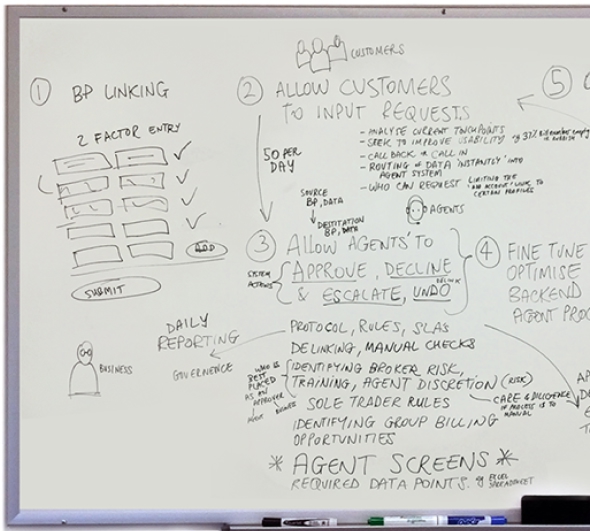 CUSTOMERS
① BP LINKING
2 FACTOR ENTRY
ADD
SUBMIT
② ALLOW CUSTOMERS
TO INPUT REQUESTS
- ANALYSE CURRENT TOUCHPOINTS
- SEEK TO IMPROVE USABILITY eg 37%
- CALL BACK OR CALL IN
- ROUTING OF DATA 'INSTANTLY' INTO
AGENT SYSTEM
- WHO CAN REQUEST LIMITING THE
'ADD ACCOUNT' LINK TO
CERTAIN PROFILES
50 PER
DAY
SOURCE
BP, DATA
AGENTS
③ ALLOW AGENTS' TO
APPROVE, DECLINE
& ESCALATE, UNDO
SYSTEM
ACTIONS
④ FINE TUNE
OPTIMISE
BACKEND
AGENT PROC
⑤
PROTOCOL, RULES, SLAS
DELINKING, MANUAL CHECKS
DAILY
REPORTING
GOVERNENCE
BUSINESS
WHO IS
BEST
PLACED
AS AN
APPROVER
IDENTIFYING BROKER RISK,
TRAINING, AGENT DISCRETION (RISK)
CARE & DILIGENCE
IF PROCESS IS TO
MANUAL
SOLE TRADER RULES
IDENTIFYING GROUP BILLING
OPPORTUNITIES
* AGENT SCREENS *
REQUIRED DATA POINTS. eg EXCEL
SPREADSHEET